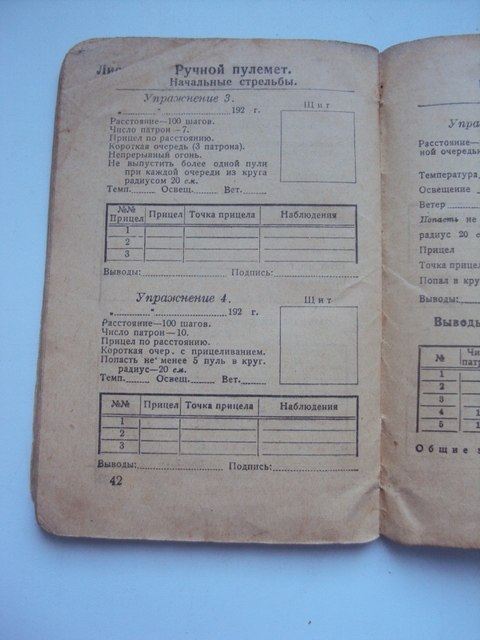 Ручной пулемет.
Начальные стрельбы.
Упражнение 3.
„ " 192 г.
Щит
Расстояние—100 шагов.
Число патрон—7.
Прицел по расстоянию.
Короткая очередь (3 патрона).
Непрерывный огонь.
Не выпустить более одной пули
при каждой очереди из круга
радиусом 20 см.
Темп. Освещ. Вет.
№№ Прицел Прицел Точка прицела Наблюдения
1
2
3
Выводы: Подпись:
Упражнение 4.
„ " 192 г.
Щит
Расстояние—100 шагов.
Число патрон—10.
Прицел по расстоянию.
Короткая очер. с прицеливанием.
Попасть не менее 5 пуль в круг.
радиус—20 см.
Темп. Освещ. Вет.
№№ Прицел Точка прицела Наблюдения
1
2
3
Выводы: Подпись:
42
Расстояние—
ной очередь
Температура
Освещение
Ветер
Попасть не
радиус 20 с
Прицел
Точка прицел
Попал в кру
Выводы:
Выводы
№
1
2
3
4 1
5 1
Общие